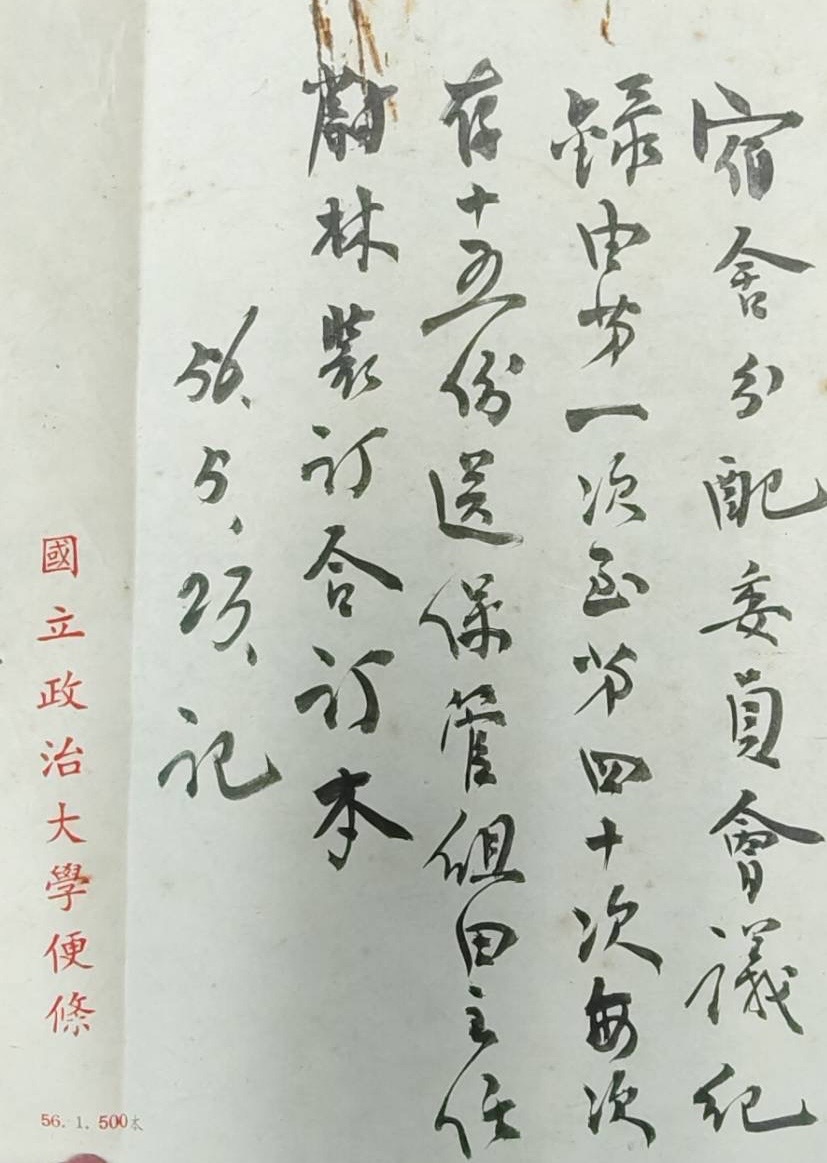 宿舍分配委員會議紀
錄由第一次至第四十次每次
存十五份送保管組田主任
蔚林裝訂合訂本
56.5.25.記
國立政治大學便條
56. 1. 500本